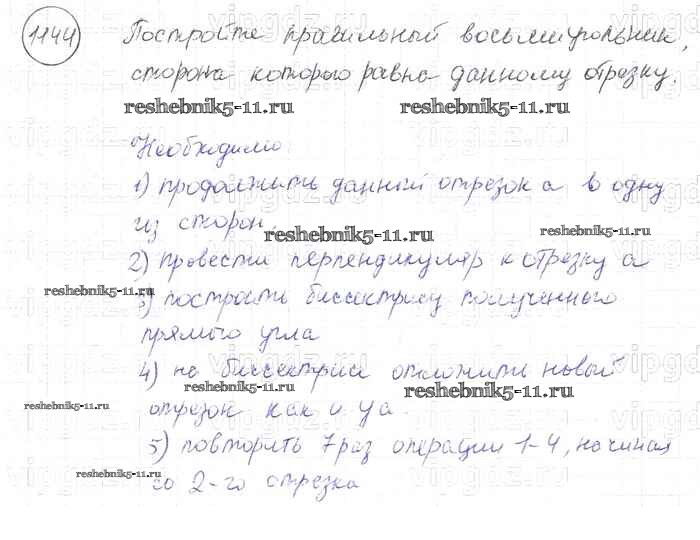 1144 Постройте правильный восьмиугольник,
сторона которого равна данному отрезку.
reshebnik5-11.ru reshebnik5-11.ru
Необходимо:
1) продолжить данный отрезок a в одну
из сторон.
reshebnik5-11.ru reshebnik5-11.ru
2) провести перпендикуляр к отрезку a
reshebnik5-11.ru
3) построить биссектрису полученного
прямого угла
4) на биссектрисе отложить новый
reshebnik5-11.ru reshebnik5-11.ru
reshebnik5-11.ru
отрезок как и у a.
5) повторить 7 раз операции 1-4, начиная
reshebnik5-11.ru
со 2-го отрезка